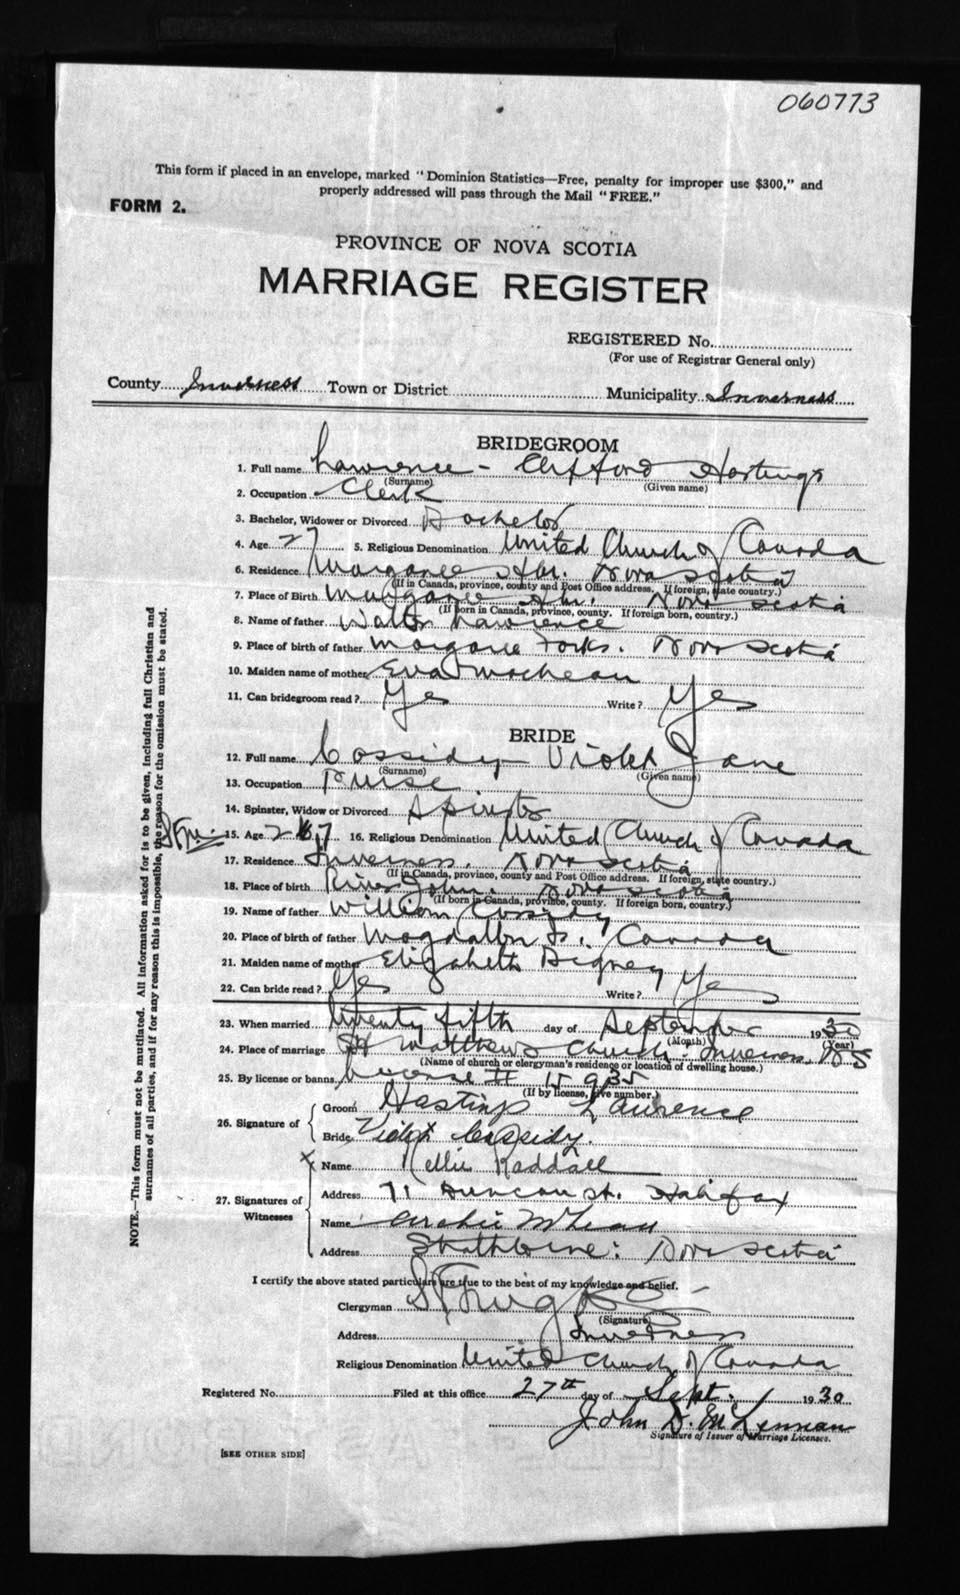 060773
This form if placed in an envelope, marked "Dominion Statistics—Free, penalty for improper use $300," and
properly addressed will pass through the Mail "FREE."
FORM 2.
PROVINCE OF NOVA SCOTIA
MARRIAGE REGISTER
REGISTERED No.
(For use of Registrar General only)
County Inverness Town or District Municipality Inverness
BRIDEGROOM
1. Full name Lawrence - Clifford Hastings
(Surname) (Given name)
2. Occupation Clerk
3. Bachelor, Widower or Divorced Bachelor
4. Age 27 5. Religious Denomination United Church of Canada
6. Residence Margaree Hbr. Nova Scotia
(If in Canada, province, county and Post Office address. If foreign, state country.)
7. Place of Birth Margaree Hbr. Nova Scotia
(If born in Canada, province, county. If foreign born, country.)
8. Name of father Walter Lawrence
9. Place of birth of father Margaree Forks. Nova Scotia
10. Maiden name of mother Eva
11. Can bridegroom read? Yes Write? Yes
BRIDE
12. Full name Cassidy Violet Jane
(Surname) (Given name)
13. Occupation Nurse
14. Spinster, Widow or Divorced Spinster
15. Age 27 16. Religious Denomination United Church of Canada
17. Residence Inverness. Nova Scotia
(If in Canada, province, county and Post Office address. If foreign, state country.)
18. Place of birth River John. Nova Scotia
(If born in Canada, province, county. If foreign born, country.)
19. Name of father William Cassidy
20. Place of birth of father Magdallen Is. Canada
21. Maiden name of mother Elizabeth Digney
22. Can bride read? Yes Write? Yes
23. When married twenty fifth day of September 1930
(Month) (Year)
24. Place of marriage St Matthews Church - Inverness, NS
(Name of church or clergyman's residence or location of dwelling house.)
25. By license or banns License # 15935
(If by license, give number.)
26. Signature of
Groom Hastings Lawrence
Bride Violet Cassidy.
27. Signatures of Witnesses
x Name Nellie Raddall
Address 71 Duncan St. Halifax
Name Archie McLean
Address Strathlorne: Nova Scotia
I certify the above stated particulars are true to the best of my knowledge and belief.
Clergyman
(Signature)
Address Inverness
Religious Denomination United Church of Canada
Registered No. Filed at this office 27th day of Sept. 1930
John D. McLennan
Signature of Issuer of Marriage Licenses.
[SEE OTHER SIDE]
NOTE.—This form must not be mutilated. All information asked for is to be given, including full Christian and
surnames of all parties, and if for any reason this is impossible, the reason for the omission must be stated.